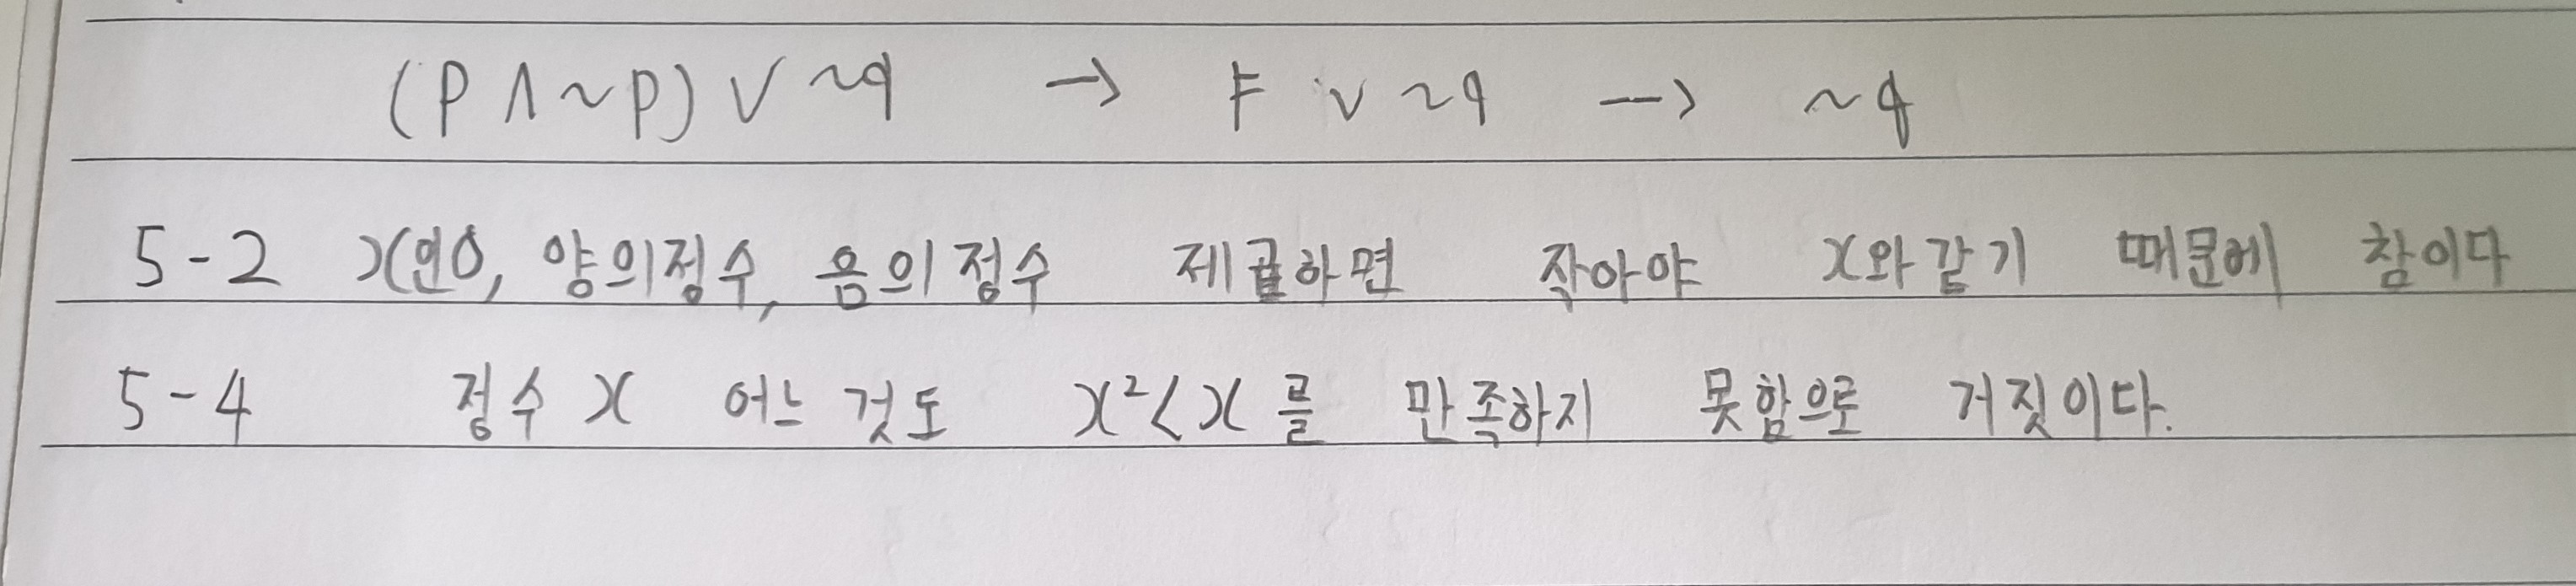 (P ∧ ~P) ∨ ~q → F ∨ ~q → ~q
5-2 x인0, 양의정수, 음의정수 제곱하면 작아야 x와같기 때문에 참이다
5-4 정수 x 어느 것도 x²<x 를 만족하지 못함으로 거짓이다.